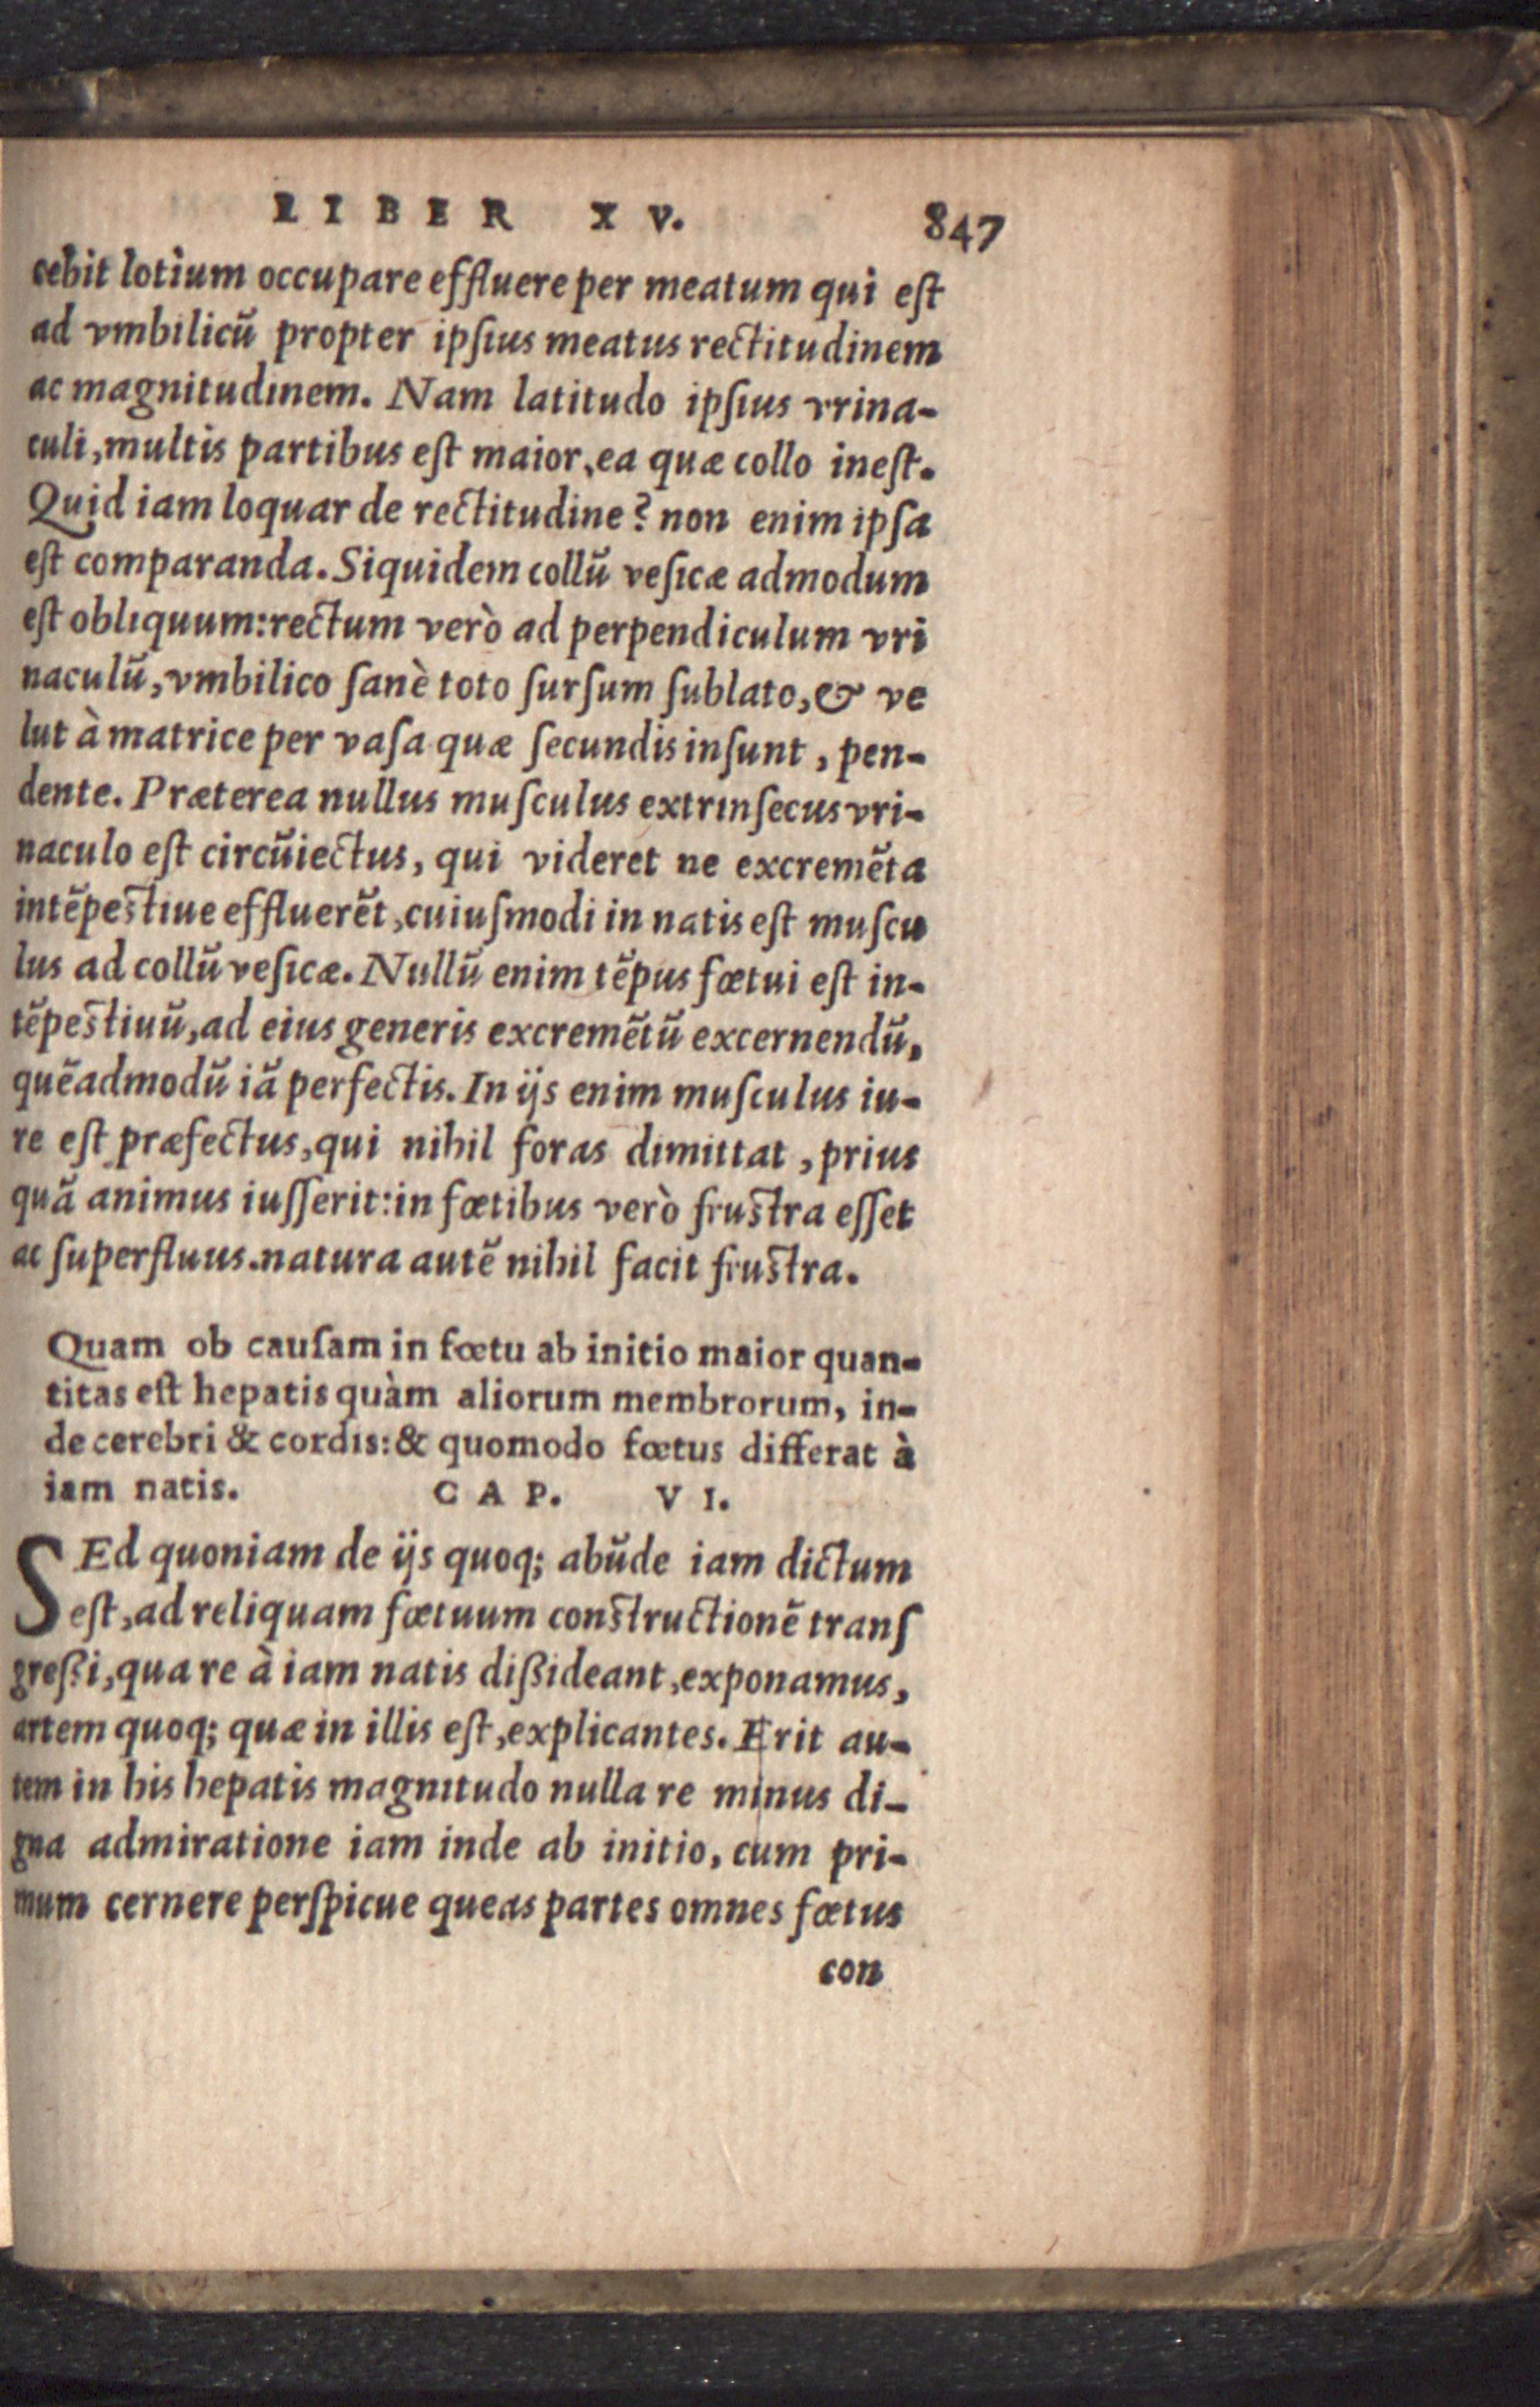 LIBER XV. 847
cebit lotium occupare effluere per meatum qui eſt
ad vmbilicū propter ipſius meatus rectitudinem
ac magnitudinem. Nam latitudo ipſius vrina-
culi, multis partibus eſt maior, ea quæ collo ineſt.
Quid iam loquar de rectitudine? non enim ipſa
eſt comparanda. Siquidem collū veſicæ admodum
eſt obliquum: rectum verò ad perpendiculum vri
naculū, vmbilico ſanè toto ſurſum ſublato, & ve
lut à matrice per vaſa quæ ſecundis inſunt, pen-
dente. Præterea nullus muſculus extrinſecus vri-
naculo eſt circūiectus, qui videret ne excremēta
intēpeſtiue effluerēt, cuiuſmodi in natis eſt muſcu
lus ad collū veſicæ. Nullū enim tēpus fœtui eſt in-
tēpeſtiuū, ad eius generis excremētū excernendū,
quēadmodū iā perfectis. In ijs enim muſculus iu-
re eſt præfectus, qui nihil foras dimittat, prius
quā animus iuſſerit: in fœtibus verò fruſtra eſſet
ac ſuperfluus. natura autē nihil facit fruſtra.
Quam ob cauſam in fœtu ab initio maior quan-
titas eſt hepatis quàm aliorum membrorum, in-
de cerebri & cordis: & quomodo fœtus differat à
iam natis. CAP. VI.
SEd quoniam de ijs quoq; abūde iam dictum
eſt, ad reliquam fœtuum conſtructionē tranſ
greßi, qua re à iam natis dißideant, exponamus,
artem quoq; quæ in illis eſt, explicantes. Erit au-
tem in his hepatis magnitudo nulla re minus di-
gna admiratione iam inde ab initio, cum pri-
mum cernere perſpicue queas partes omnes fœtus
con